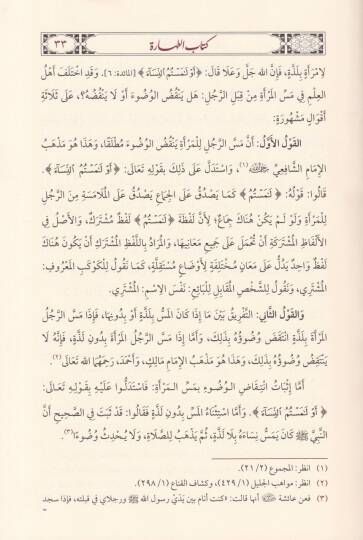 كتاب الطهارة
٣٣
لامْرَأَةٍ بِلَذَّةٍ، فَإِنَّ الله جَلَّ وَعَلَا قَالَ: ﴿أَوْ لَٰمَسْتُمُ ٱلنِّسَآءَ﴾ [المائدة: ٦]. وَقَدِ اخْتَلَفَ أَهْلُ
العِلْمِ فِي مَسِّ المَرْأَةِ مِنْ قِبَلِ الرَّجُلِ: هَلْ يَنْقُضُ الوُضُوءَ أَوْ لَا يَنْقُضُهُ؟، عَلَى ثَلَاثَةِ
أَقْوَالٍ مَشْهُورَةٍ:
القَوْلُ الأَوَّلُ: أَنَّ مَسَّ الرَّجُلِ لِلْمَرْأَةِ يَنْقُضُ الوُضُوءَ مُطْلَقًا، وَهَذَا هُوَ مَذْهَبُ
الإِمَامِ الشَّافِعِيِّ (١)، وَاسْتَدَلَّ عَلَى ذَلِكَ بِقَوْلِهِ تَعَالَى: ﴿أَوْ لَٰمَسْتُمُ ٱلنِّسَآءَ﴾.
قَالُوا: قَوْلُهُ: ﴿لَٰمَسْتُمُ﴾ كَمَا يَصْدُقُ عَلَى الجِمَاعِ يَصْدُقُ عَلَى المُلَامَسَةِ مِنَ الرَّجُلِ
لِلْمَرْأَةِ وَلَوْ لَمْ يَكُنْ هُنَاكَ جِمَاعٌ؛ لِأَنَّ لَفْظَةَ ﴿لَٰمَسْتُمُ﴾ لَفْظٌ مُشْتَرَكٌ، وَالأَصْلُ فِي
الأَلْفَاظِ المُشْتَرَكَةِ أَنْ تُحْمَلَ عَلَى جَمِيعِ مَعَانِيهَا، وَالمُرَادُ بِاللَّفْظِ المُشْتَرَكِ أَنْ يَكُونَ هُنَاكَ
لَفْظٌ وَاحِدٌ يَدُلُّ عَلَى مَعَانٍ مُخْتَلِفَةٍ لِأَوْضَاعٍ مُسْتَقِلَّةٍ، كَمَا نَقُولُ لِلْكَوْكَبِ المَعْرُوفِ:
المُشْتَرِي، وَنَقُولُ لِلشَّخْصِ المُقَابِلِ لِلْبَائِعِ: نَفْسَ الِاسْمِ: المُشْتَرِي.
وَالقَوْلُ الثَّانِي: التَّفْرِيقُ بَيْنَ مَا إِذَا كَانَ المَسُّ بِلَذَّةٍ أَوْ بِدُونِهَا، فَإِذَا مَسَّ الرَّجُلُ
المَرْأَةَ بِلَذَّةٍ انْتَقَضَ وُضُوؤُهُ بِذَلِكَ، وَأَمَّا إِذَا مَسَّ الرَّجُلُ المَرْأَةَ بِدُونِ لَذَّةٍ، فَإِنَّهُ لَا
يَنْتَقِضُ وُضُوؤُهُ بِذَلِكَ، وَهَذَا هُوَ مَذْهَبُ الإِمَامِ مَالِكٍ، وَأَحْمَدَ، رَحِمَهُمَا الله تَعَالَى(٢).
أَمَّا إِثْبَاتُ انْتِقَاضِ الوُضُوءِ بِمَسِّ المَرْأَةِ: فَاسْتَدَلُّوا عَلَيْهِ بِقَوْلِهِ تَعَالَى:
﴿أَوْ لَٰمَسْتُمُ ٱلنِّسَآءَ﴾. وَأَمَّا اسْتِثْنَاءُ المَسِّ بِدُونِ لَذَّةٍ فَقَالُوا: قَدْ ثَبَتَ فِي الصَّحِيحِ أَنَّ
النَّبِيَّ ﷺ كَانَ يَمَسُّ نِسَاءَهُ بِلَا لَذَّةٍ، ثُمَّ يَذْهَبُ لِلصَّلَاةِ، وَلَا يُحْدِثُ وُضُوءًا(٣).
(١) انظر: المجموع (٢/ ٢١).
(٢) انظر: مواهب الجليل (١/ ٤٢٩)، وكشاف القناع (١/ ٢٩٨).
(٣) فعن عائشة أنها قالت: «كنت أنام بين يَدَيْ رسول الله ﷺ ورجلاي في قبلته، فإذا سجد